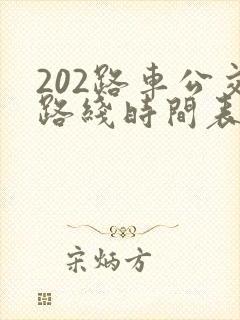 202路車公交
路綫時間表
宋炳方